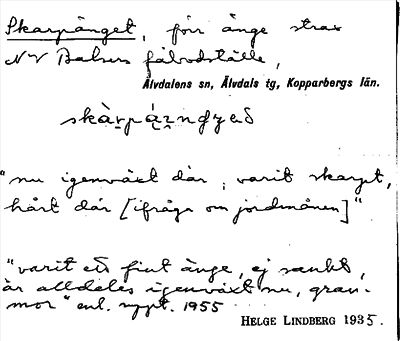 Skarpänget, förr änge strax
NV Balsers fäbodställe,
Älvdalens sn, Älvdals tg, Kopparbergs län.
skàrpáŋgeð
"nu igenväxt där, varit skarpt,
hårt där [ifråga om jordmånen]"
"varit ett fint änge, ej sankt,
är alldeles igenväxt nu, gran-
mor" enl. uppt. 1955
HELGE LINDBERG 1935.